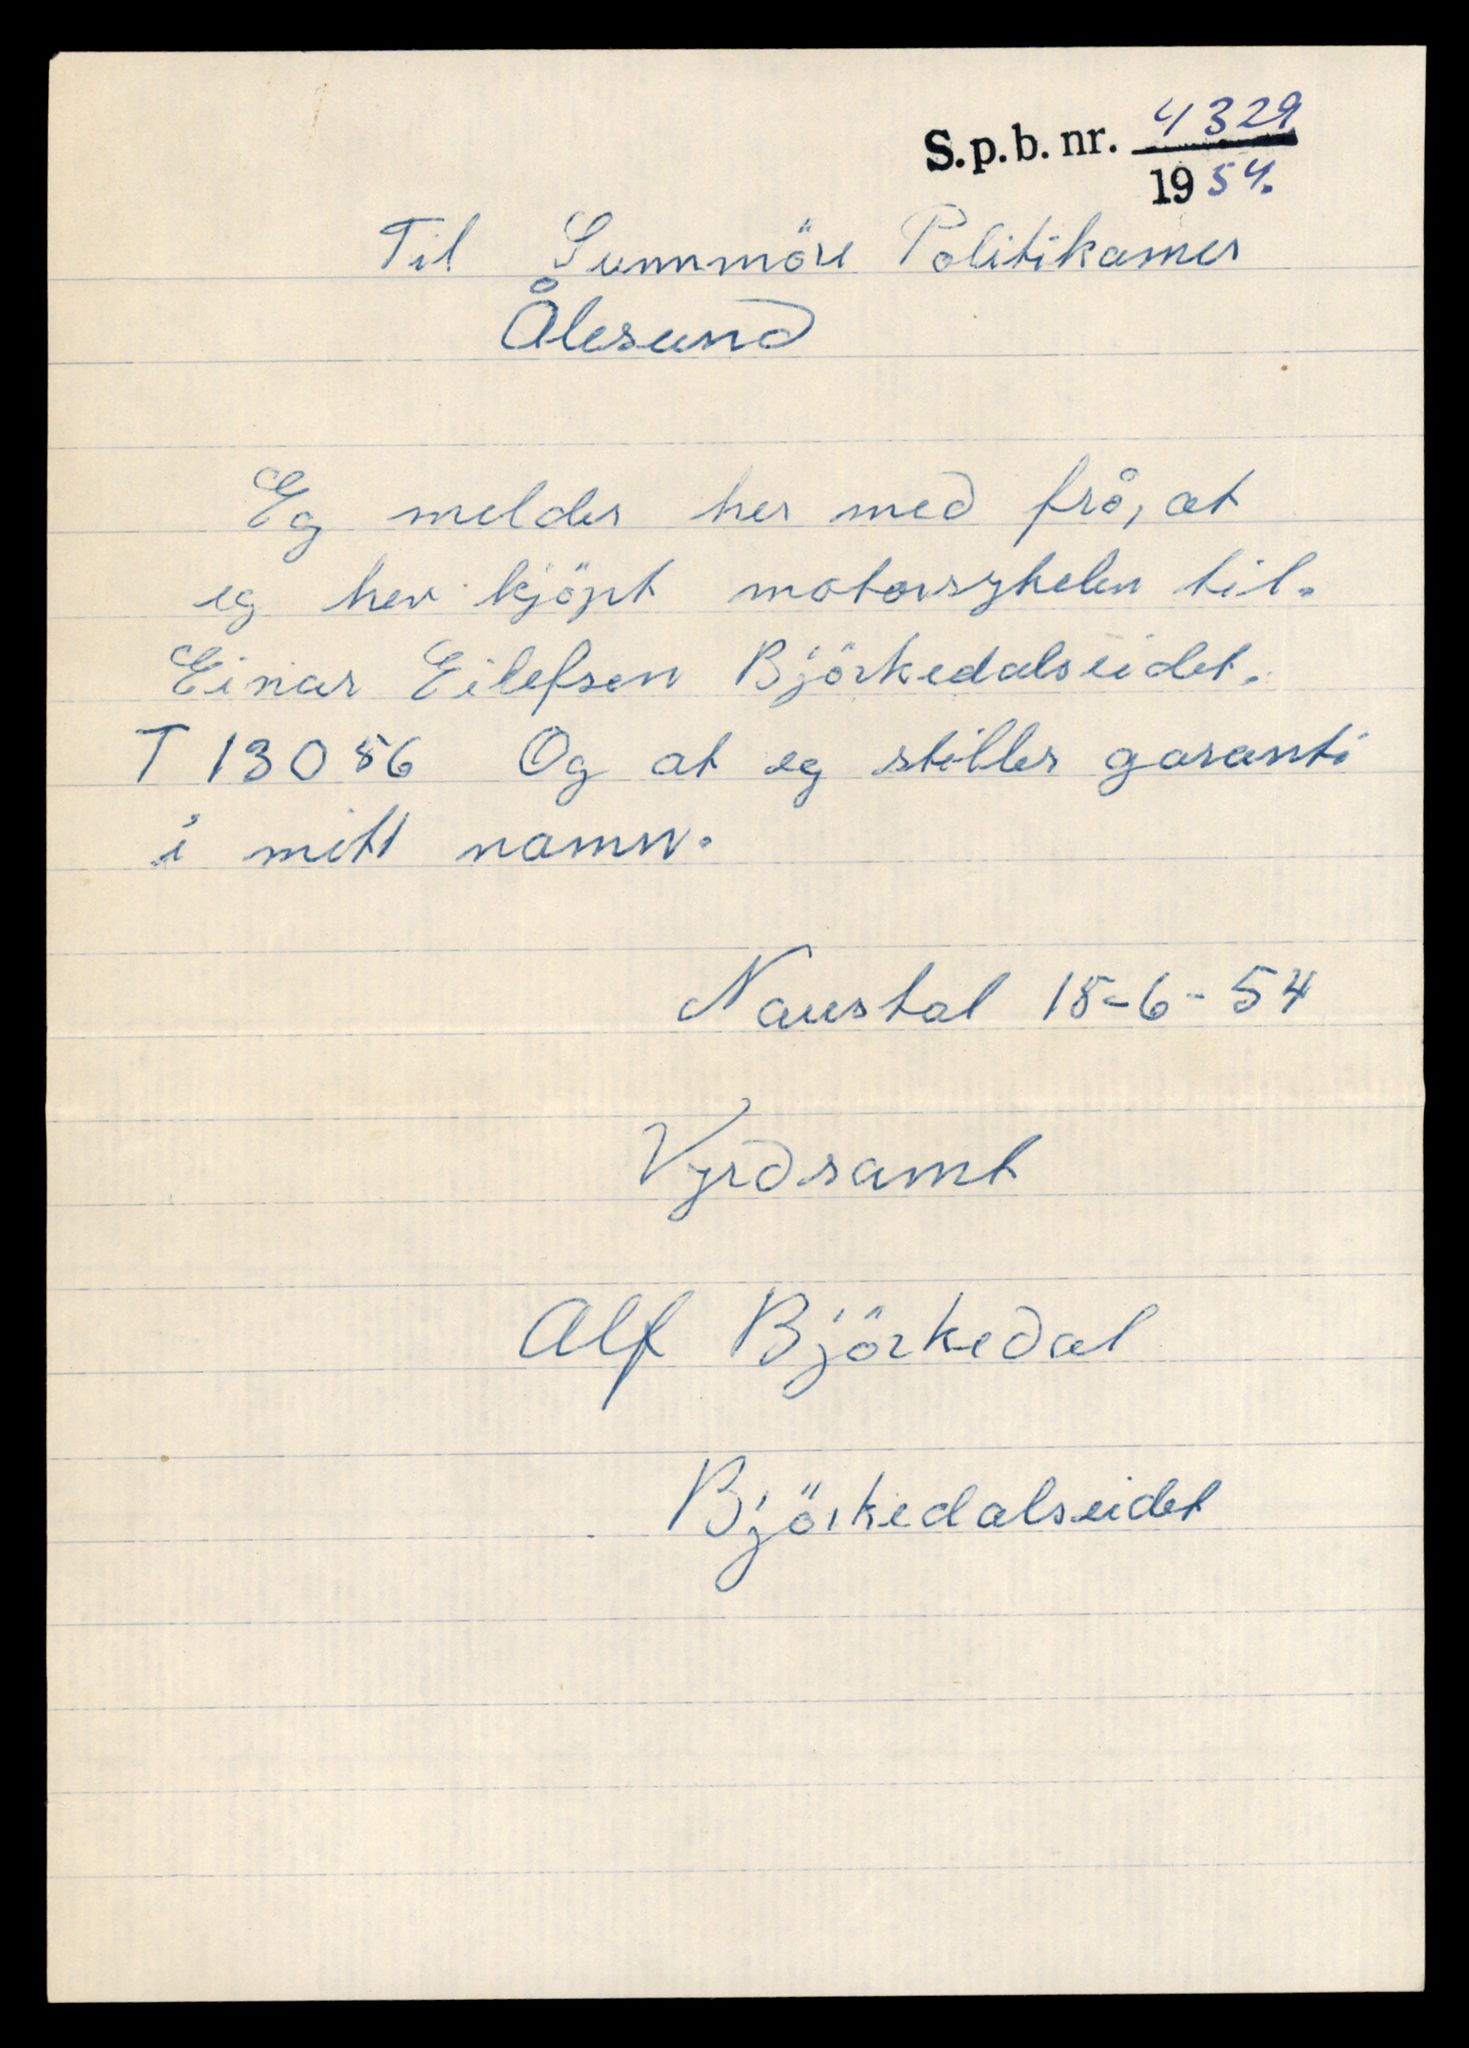 S.p.b. nr. 4329
1954.
Til Sunnmöre Politikamer
Ålesund
Eg melder her med frå, at
eg hev kjöpt motorsykelen til.
Einar Eilefsen Björkedalseidet.
T 13086 Og at eg stiller garanti
i mitt namn.
Naustal 18-6-54
Vyrdsamt
Alf Björkedal
Björkedalseidet